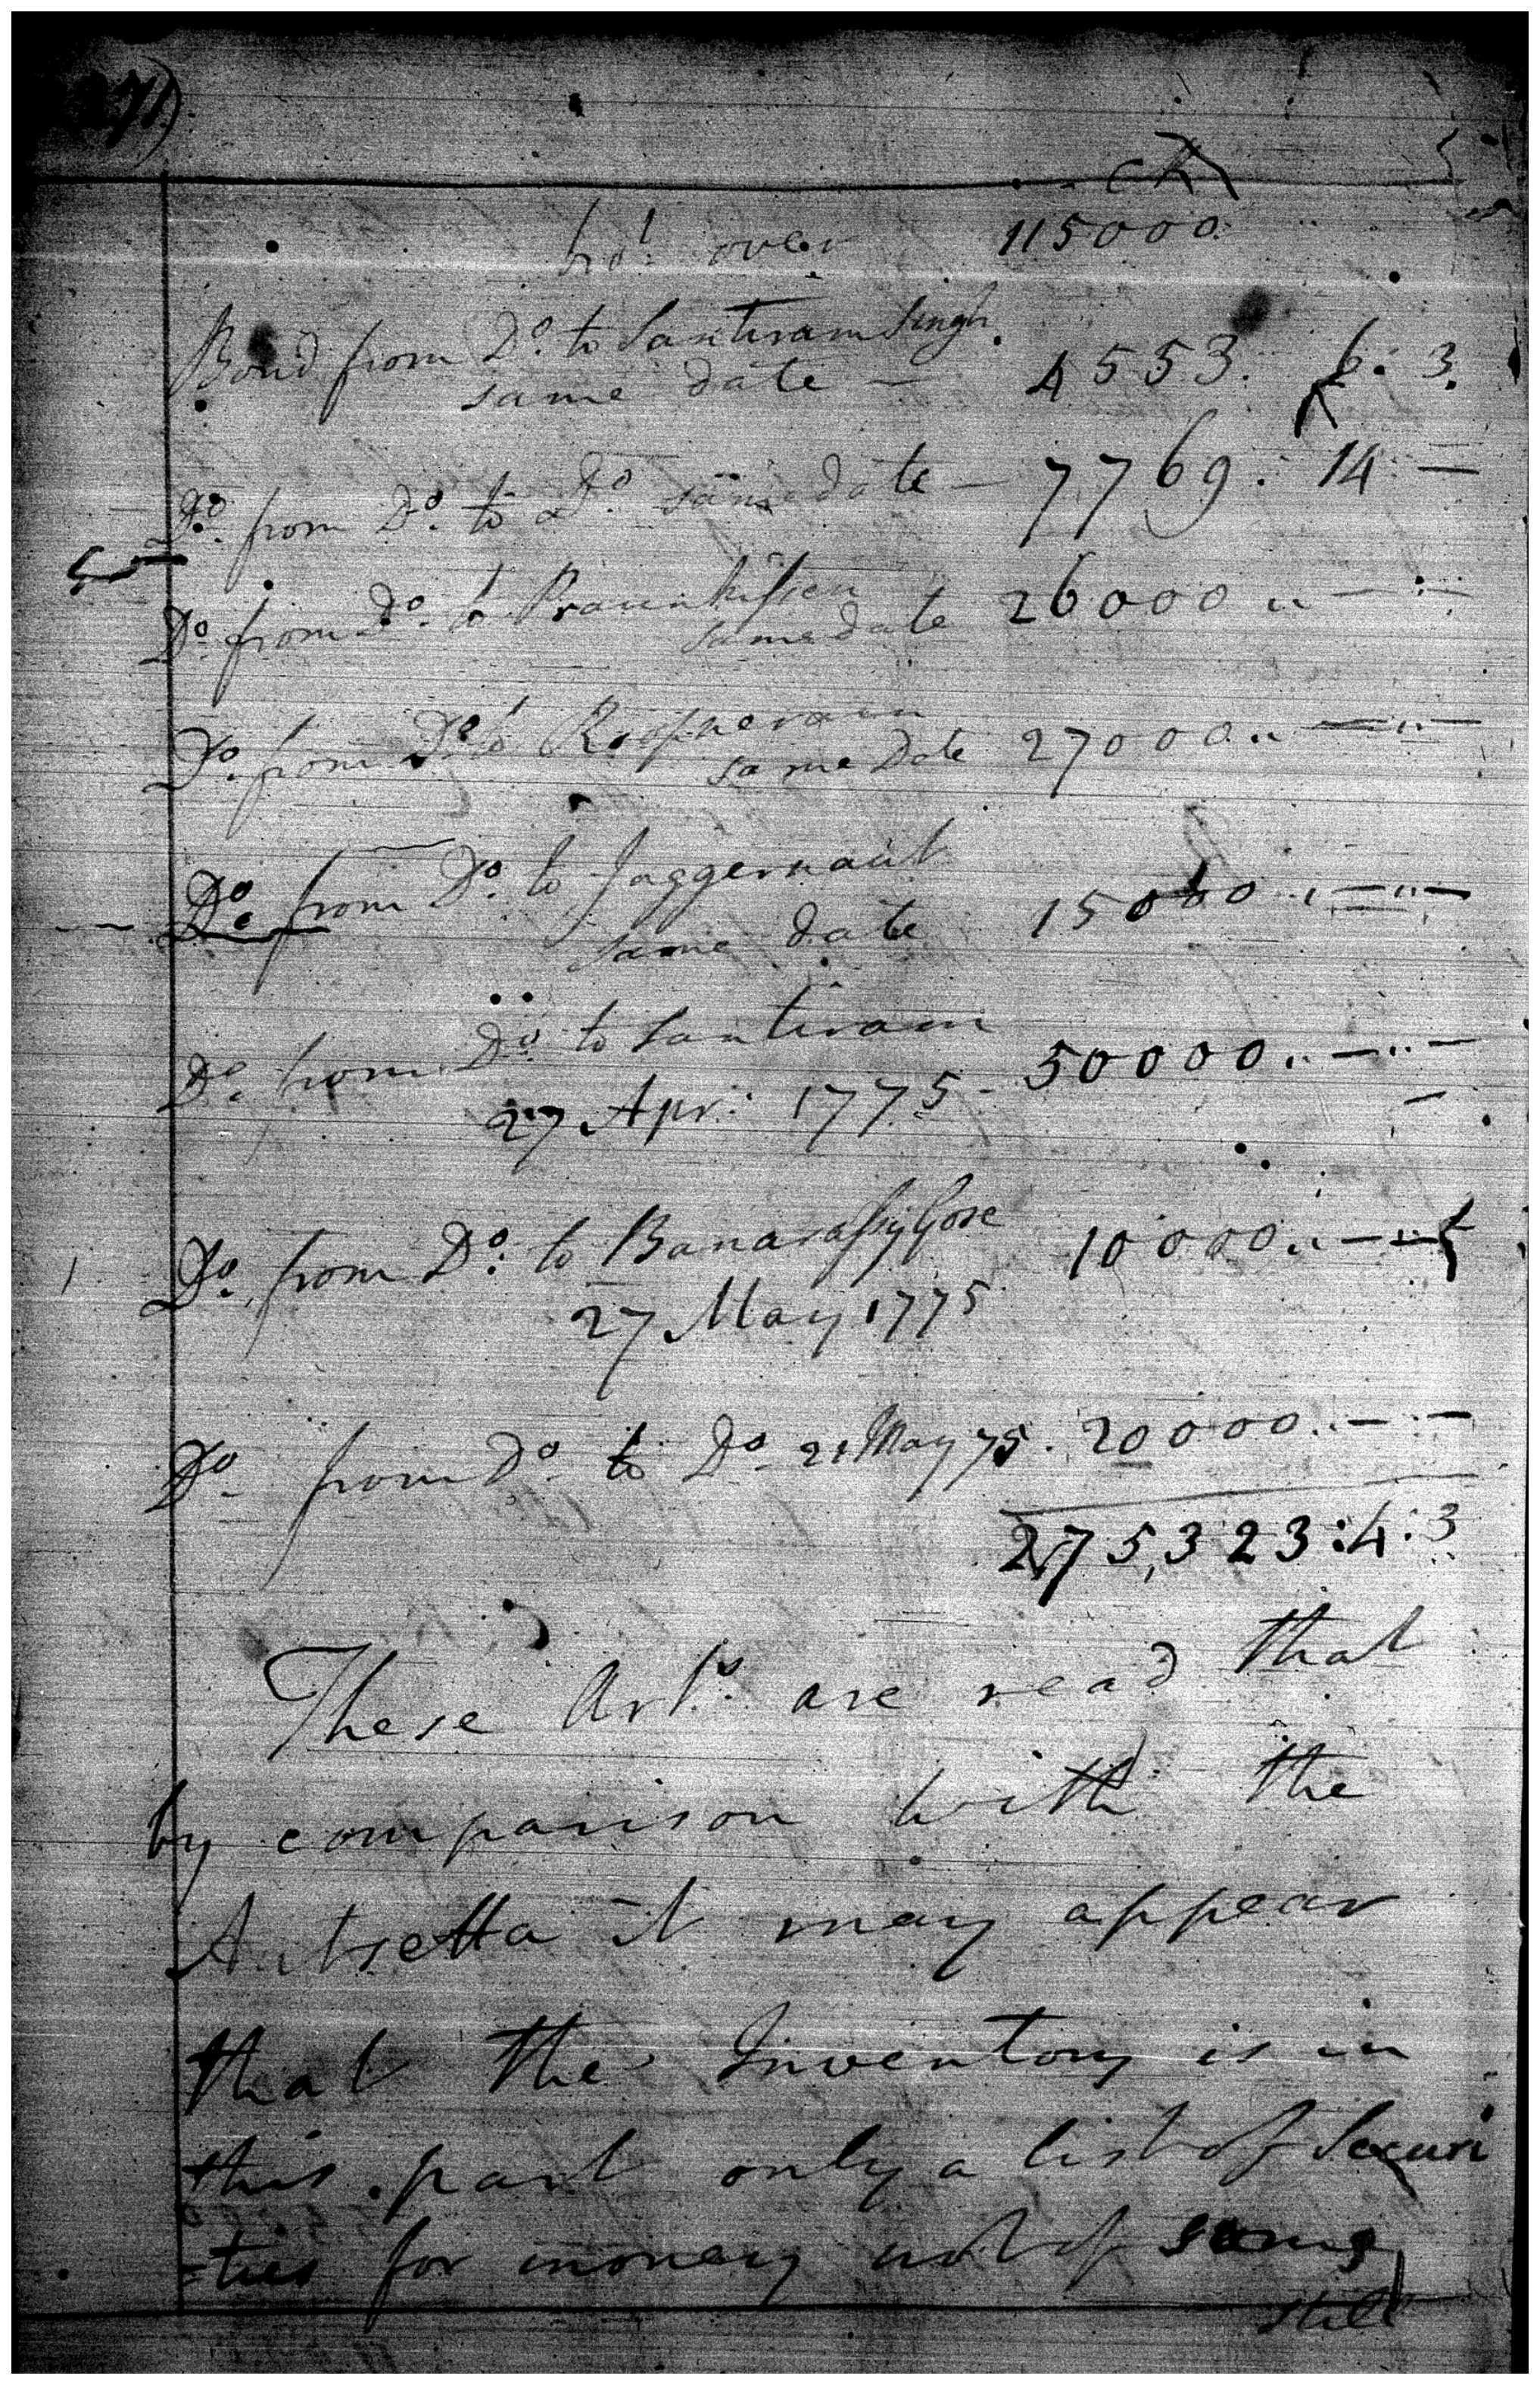 271)
bro.t over 115000
Bond from Do. to Santiram Singh
same date — 4553. 6: 3.
Do. from Do. to Do. same date — 7769: 14 —
Do. from Do. to Praunkissen
same date 26000 .. — .. —
Do. from Do. to Roopneram
same Date 27000 .. — .. —
Do. from Do. to Jaggernaut
same date 15000 .. — .. —
Do. from Do. to Santiram
27 Apr: 1775 - 50000 .. — .. —
Do. from Do. to Banarassy Gose 10000 .. — ..
27 May 1775
Do. from Do. to Do. 21 May 75. 20000 .. — .. —
275,323:4:3
These Arts. are read that
by comparison with the
Autsetta it may appear
that the Inventory is in
this part only a list of Securi
=ties for money not of sums
still